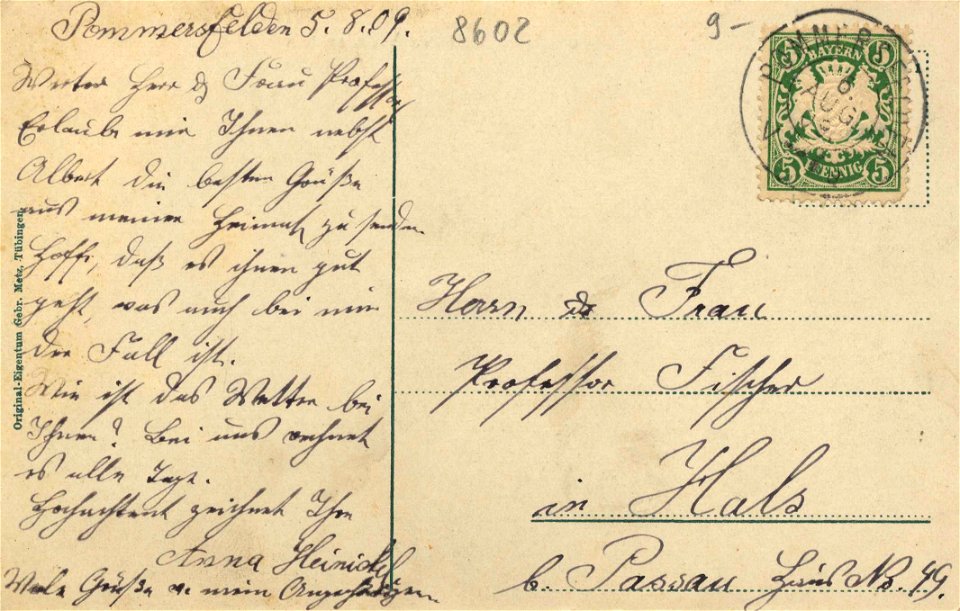 Pommersfelden 5.8.09.
8602
9-
Werter Herr & Frau Professor
Erlaube mir Ihnen nebst
Albert die besten Grüße
aus meiner Heimat zu senden
Hoffe, daß es ihnen gut
geht, was auch bei mir
der Fall ist.
Wie ist das Wetter bei
Ihnen? Bei uns rechnet
es alle Tage.
Hochachtent zeichnet Ihre
Anna Heinickel
Viele Grüße v. mein Angehörigen
Original-Eigentum Gebr. Metz, Tübingen.
BAYERN
5 5
5 5
PFENNIG
POMMERSFELDEN
6.
AUG
Herrn & Frau
Professor Fischer
in Hals
b. Passau Haus No. 49.